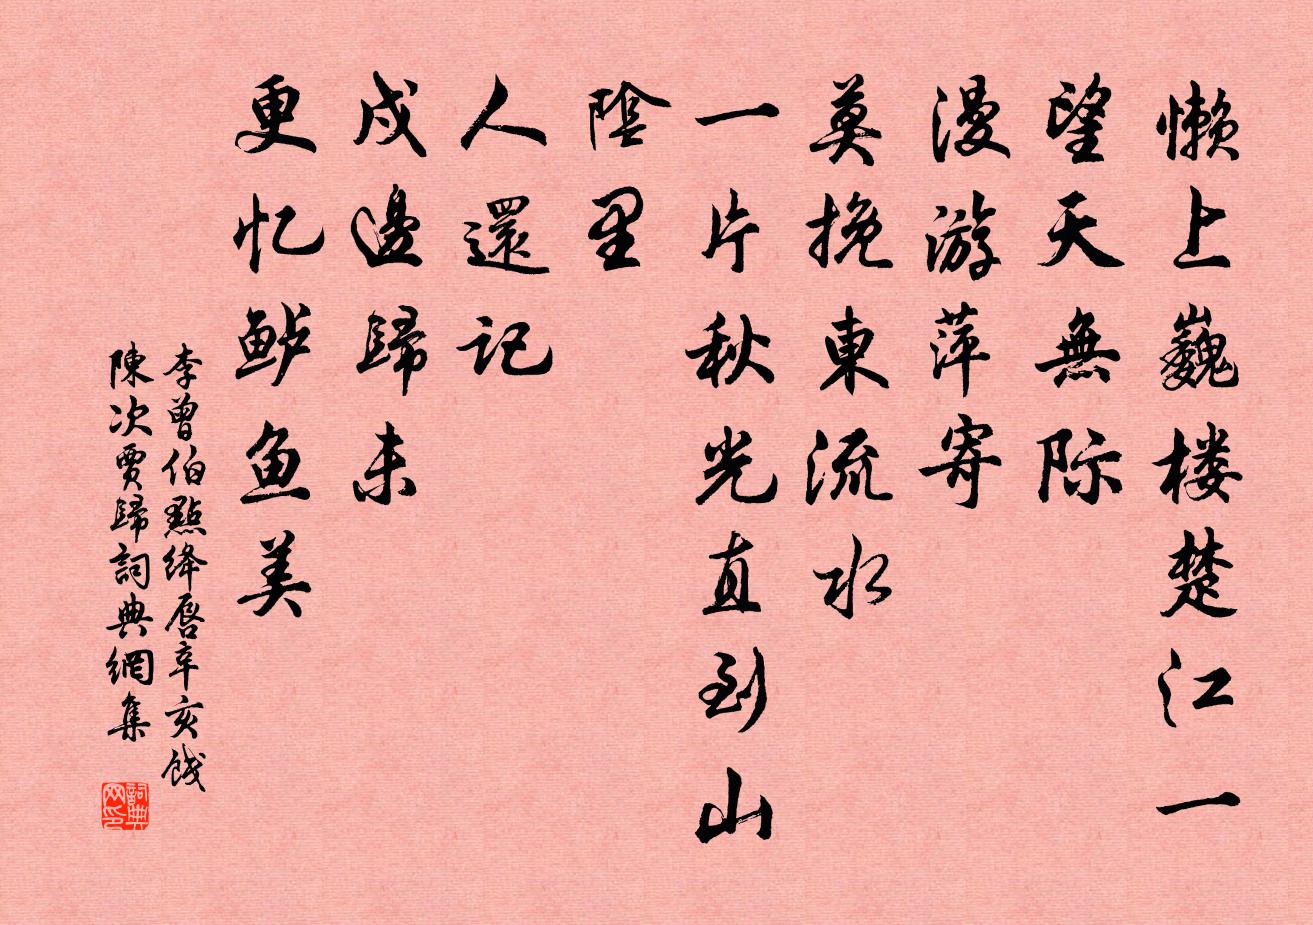 懒上巍楼楚江一
望天無际
漫游萍寄
莫挽東流水
一片秋光直到山
陰里
人還記
戍邊歸未
更忆鲈鱼美
李曾伯點绛唇辛亥餞
陳次賈歸詞典網集
詞典
网印